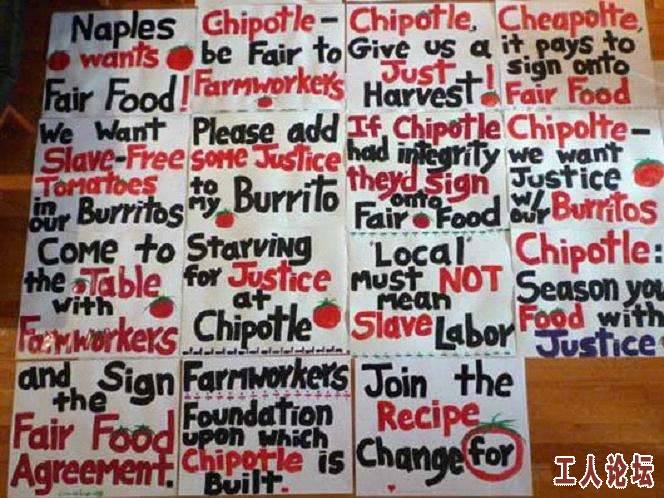 Naples
wants
Fair Food!
Chipotle-
be Fair to
Farmworkers
Chipotle,
Give us a
Just
Harvest!
Cheapolte,
it pays to
sign onto
Fair Food
We Want
Slave-Free
Tomatoes
in
our Burritos
Please add
some Justice
to
my Burrito
If Chipotle
had integrity
they'd sign
onto
Fair Food
Chipolte-
we want
Justice
w/
our Burritos
Come to
the Table
with
Farmworkers
Starving
for Justice
at
Chipotle
"Local"
must NOT
mean
Slave Labor
Chipotle:
Season you
Food with
Justice
and Sign
the
Fair Food
Agreement.
Farmworkers
Foundation
upon which
Chipotle is
Built.
Join the
Recipe
Change for
工人论坛